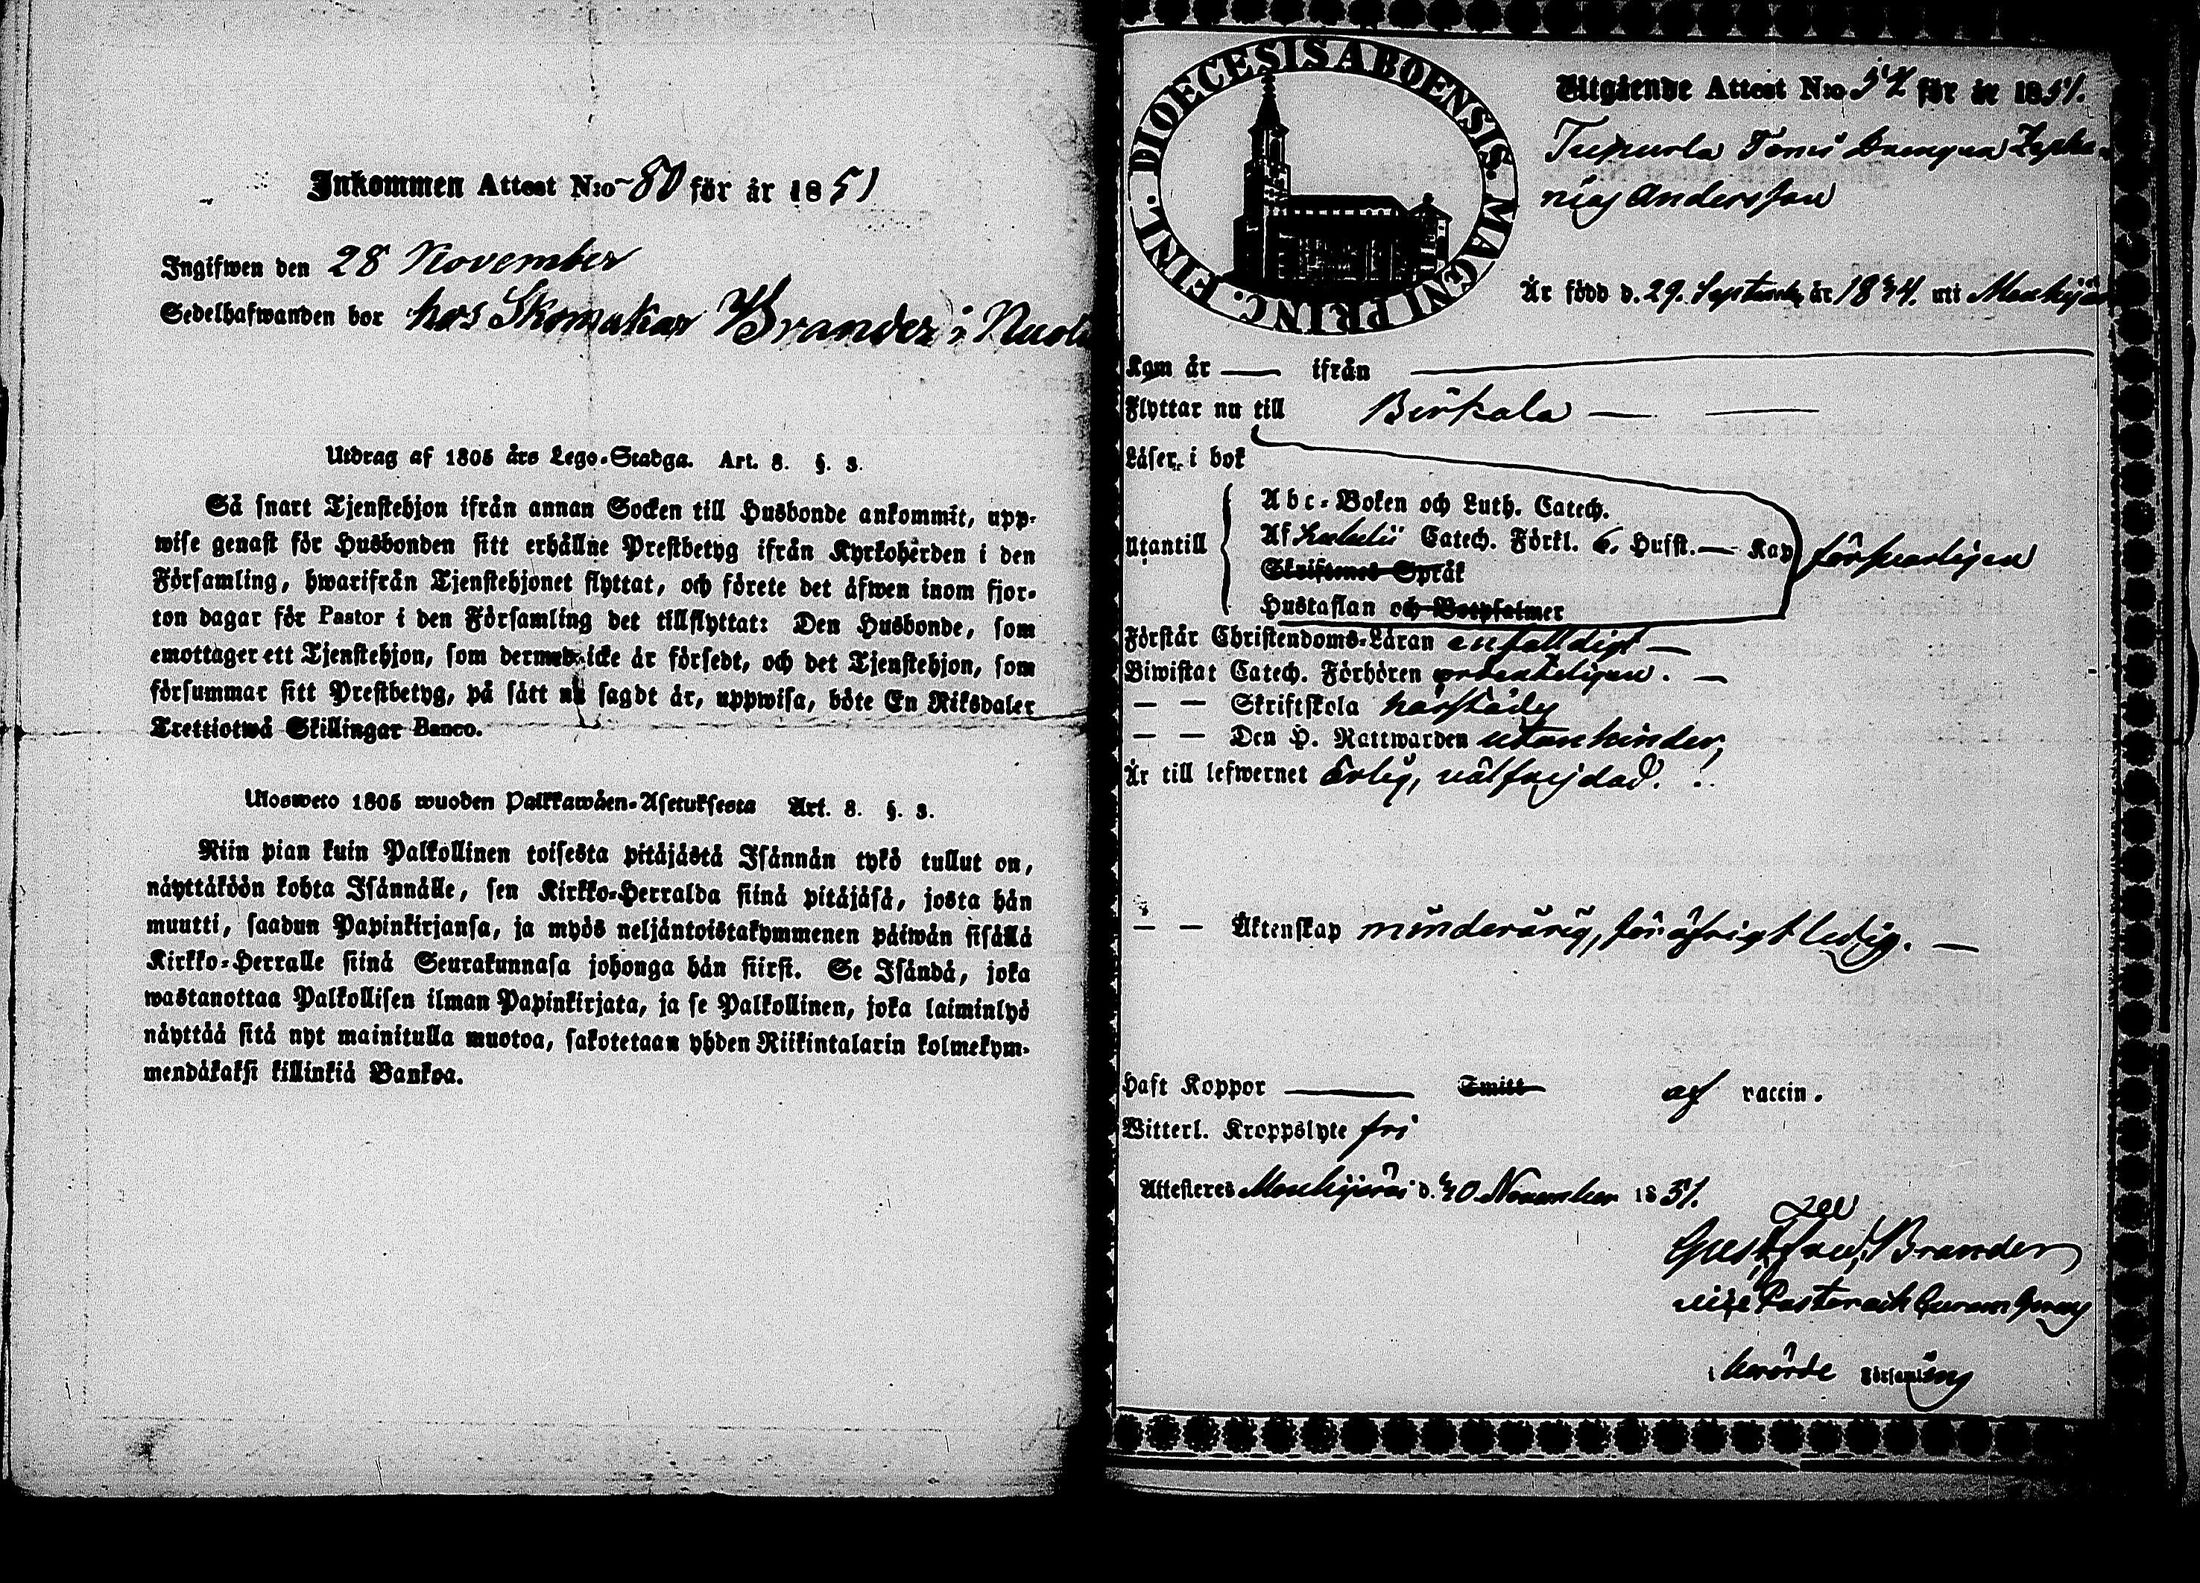 Inkommen Attest N:o 80 för år 1851
Ingifwen den 28 November
Sedelhafwanden bor hos Skomakar Brander i
Utdrag af 1805 års Lego-Stadga. Art. 8. §. 3.
Så snart Tjenstehjon ifrån annan Socken till Husbonde ankommit, upp-
wise genast för Husbonden sitt erhållne Prestbetyg ifrån Kyrkoherden i den
Församling, hwarifrån Tjenstehjonet flyttat, och förete det äfwen inom fjor-
ton dagar för Pastor i den Församling det tillflyttat: Den Husbonde, som
emottager ett Tjenstehjon, som dermed icke är försedt, och det Tjenstehjon, som
försummar sitt Prestbetyg, på sätt nu sagdt är, uppwisa, böte En Riksdaler
Trettiotwå Skillingar Banco.
Ulosweto 1805 wuoden Palkkawäen-Asetuksesta Art. 8. §. 3.
Niin pian kuin Palkollinen toisesta pitäjästä Isännän tykö tullut on,
näyttäköön kohta Isännälle, sen Kirkko-Herralda siinä pitäjäsä, josta hän
muutti, saadun Papinkirjansa, ja myös neljäntoistakymmenen päiwän sisällä
Kirkko-Herralle siinä Seurakunnasa johonga hän siirsi. Se Isändä, joka
wastanottaa Palkollisen ilman Papinkirjata, ja se Palkollinen, joka laiminlyö
näyttää sitä nyt mainitulla muotoa, sakotetaan yhden Riikintalarin kolmekym-
mendäkaksi killinkiä Bankoa.
DIOECESIS ABOENSIS. MAGNI PRINC. FINL.
Utgående Attest N:o 54 för år 1851.
Drengen Zepha-
nias Andersson
Är född d. 29. September år 1834. uti
Kom år — ifrån
Flyttar nu till Birkala
Läser i bok
Utantill
Abc-Boken och Luth. Catech.
Af Catech. Förkl. 6. Hufst. — Kap
Skriftenes Språk
Hustaflan och Botpsalmer
försvarligen
Förstår Christendoms-Läran enfaldigt
Biwistat Catech. Förhören ordenteligen.
— — Skriftskola härstädes
— — Den H. Nattwarden utan hinder,
Är till lefwernet Ärlig, välfrejdad.
— — Äktenskap minderårig, för öfrigt ledig.
Haft Koppor — Smitt af vaccin.
Witterl. Kroppslyte fri
Attesteras Mouhijärvi d. 20 November 1851.
Gust. Fred. Brander
vice Pastor
i berörde Församling